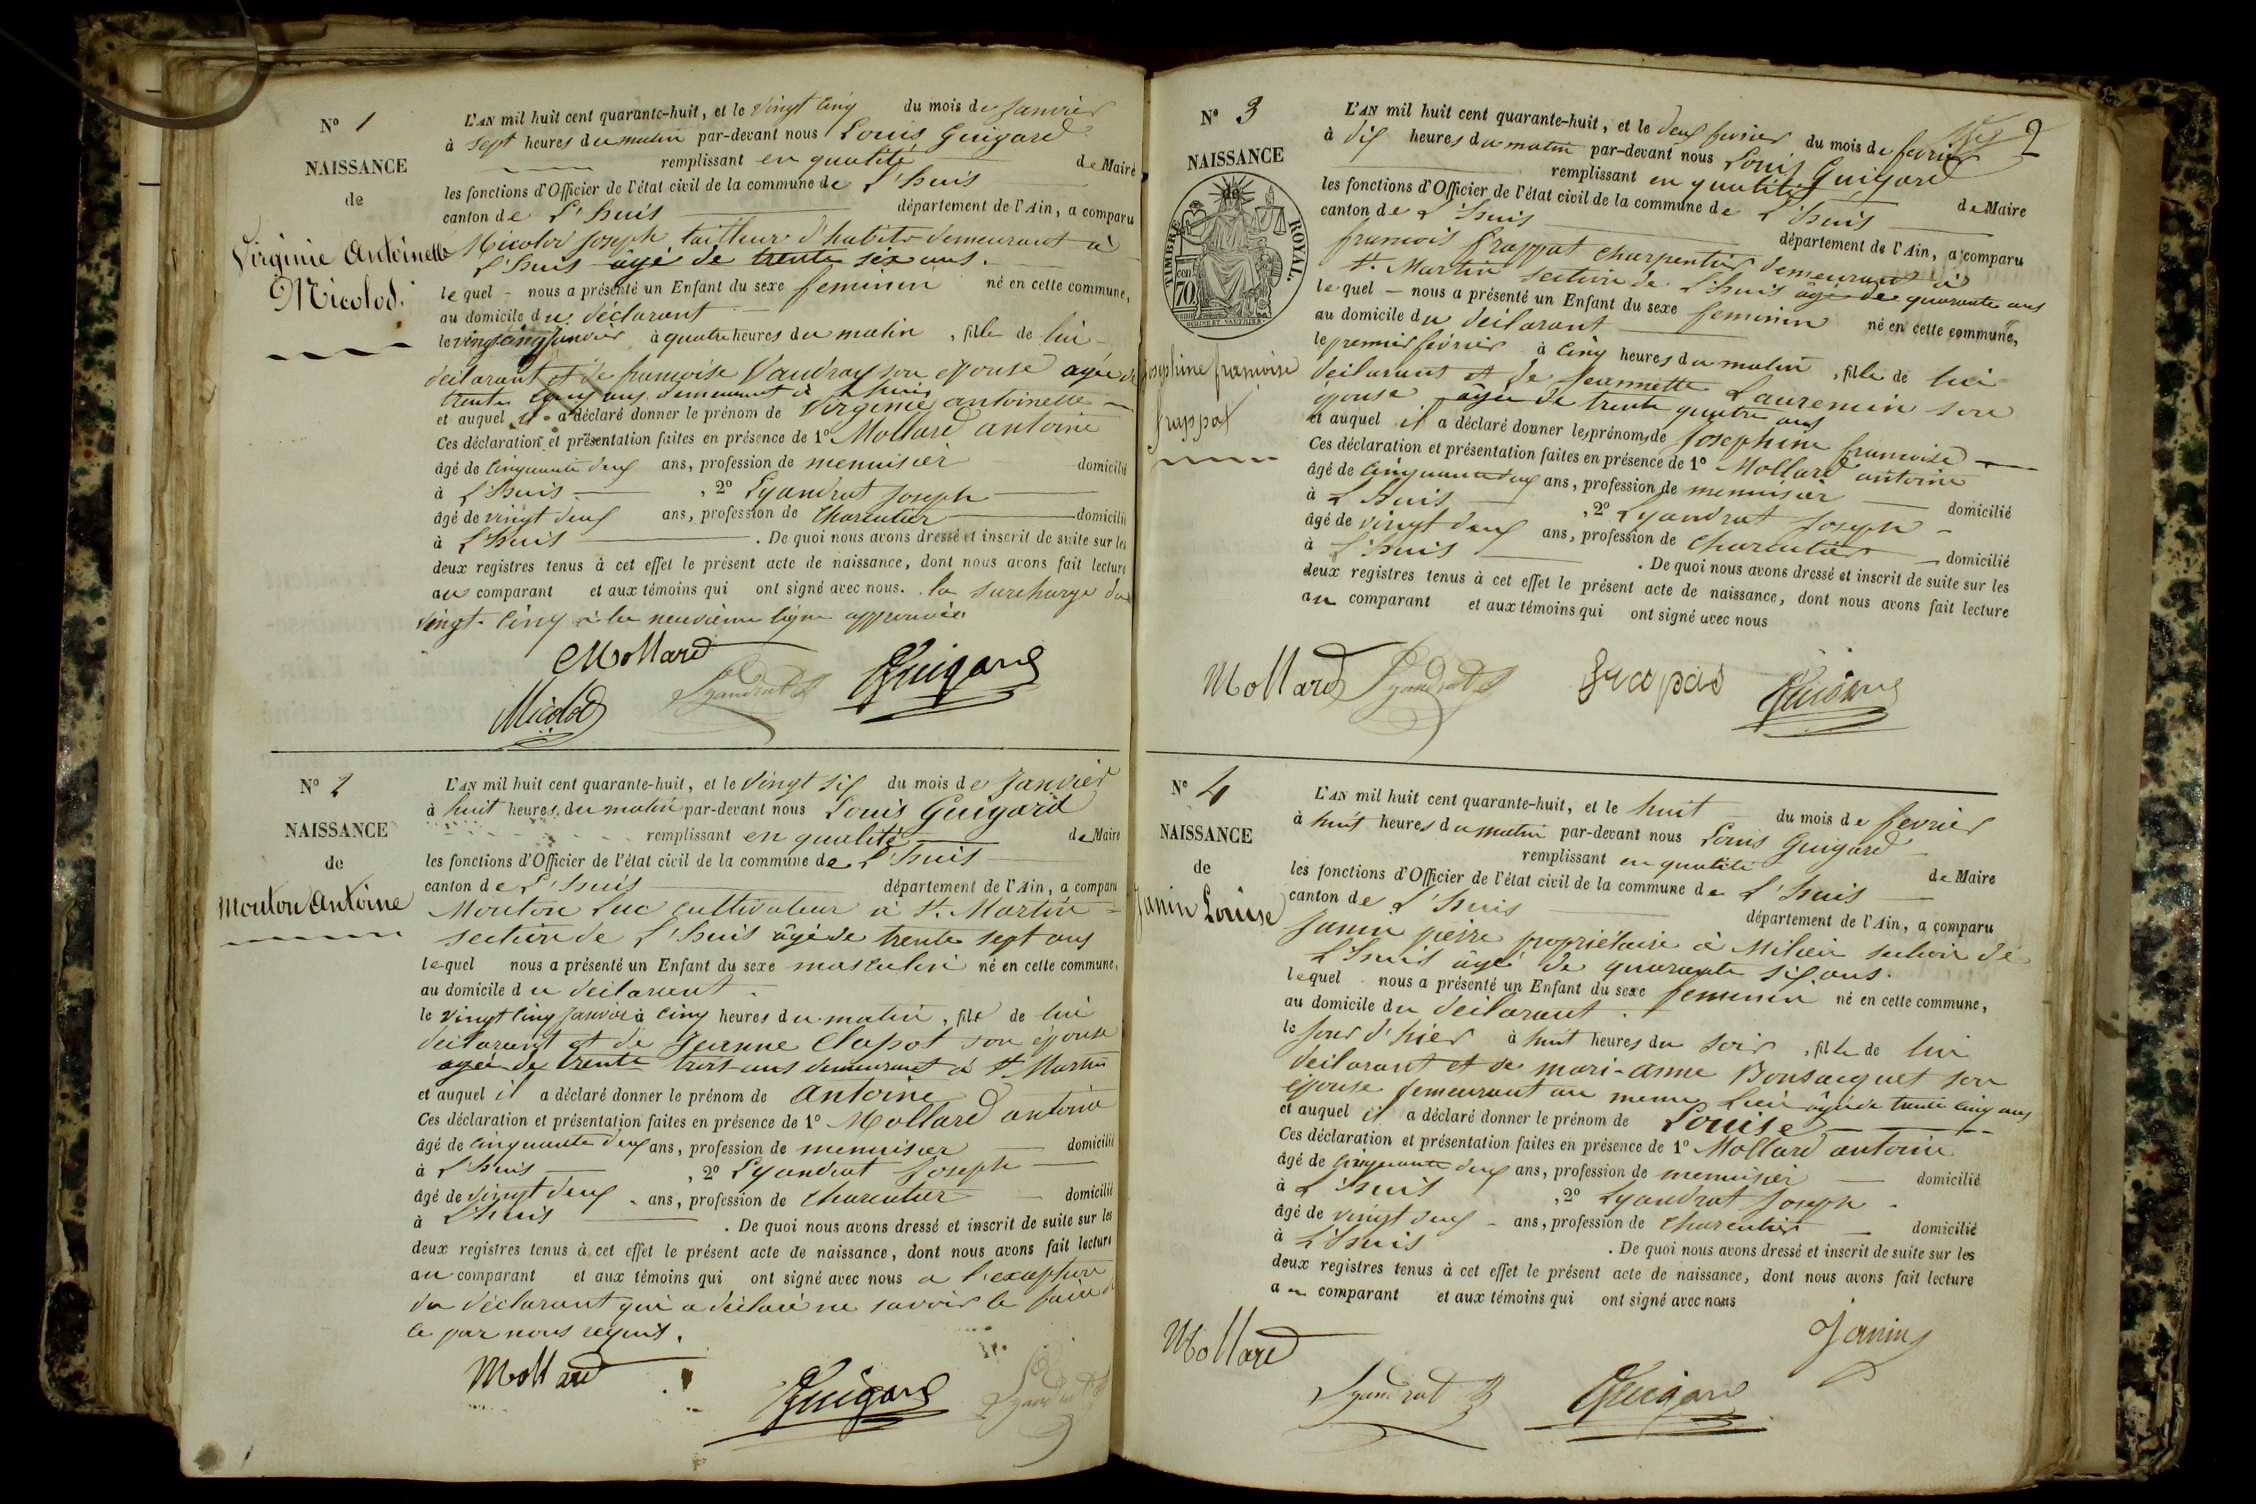 N° 1
NAISSANCE
de
Virginie Antoinette
Nicolod.
L'AN mil huit cent quarante-huit, et le vingt cinq du mois de Janvier
à sept heures du matin par-devant nous Louis Guigard
remplissant en qualité de Maire
les fonctions d'Officier de l'état civil de la commune de L'huis
canton de L'huis département de l'Ain, a comparu
Nicolod Joseph tailleur d'habits demeurant à
L'huis agé de trente six ans.
lequel nous a présenté un Enfant du sexe feminin né en cette commune,
au domicile du déclarant
le vingt cinq janvier à quatre heures du matin, fille de lui
déclarant et de francoise Vaudray son epouse agée de
trente cinq ans demeurant à L'huis
et auquel il a déclaré donner le prénom de Virginie antoinette
Ces déclaration et présentation faites en présence de 1° Mollard antoine
âgé de cinquante deux ans, profession de menuisier domicilié
à L'huis , 2° Lyandrat Joseph
âgé de vingt deux ans, profession de Charcutier domicilié
à L'huis . De quoi nous avons dressé et inscrit de suite sur les
deux registres tenus à cet effet le présent acte de naissance, dont nous avons fait lecture
au comparant et aux témoins qui ont signé avec nous. la surcharge du
vingt-cinq à la neuvième ligne approuvée
Mollard
Nicolod Lyandrat Guigard
N° 2
NAISSANCE
de
Mouton Antoine
L'AN mil huit cent quarante-huit, et le vingt six du mois de Janvier
à huit heures du matin par-devant nous Louis Guigard
remplissant en qualité de Maire
les fonctions d'Officier de l'état civil de la commune de L'huis
canton de L'huis département de l'Ain, a comparu
Mouton Luc cultivateur à St. Martin
section de L'huis âgé de trente sept ans
lequel nous a présenté un Enfant du sexe masculin né en cette commune,
au domicile du déclarant
le vingt cinq janvier à cinq heures du matin, fils de lui
declarant et de Jeanne Clapot son épouse
agée de trente trois ans demeurant à St. Martin
et auquel il a déclaré donner le prénom de Antoine
Ces déclaration et présentation faites en présence de 1° Mollard antoine
âgé de cinquante deux ans, profession de menuisier domicilié
à L'huis , 2° Lyandrat Joseph
âgé de vingt deux ans, profession de Charcutier domicilié
à L'huis . De quoi nous avons dressé et inscrit de suite sur les
deux registres tenus à cet effet le présent acte de naissance, dont nous avons fait lecture
au comparant et aux témoins qui ont signé avec nous a l'exception
du déclarant qui a déclaré ne savoir le faire de
ce par nous requis.
Mollard Guigard Lyandrat
2
N° 3
NAISSANCE
de
TIMBRE ROYAL.
70
Josephine francoise
frappat
L'AN mil huit cent quarante-huit, et le deux fevrier du mois de fevrier
à dix heures du matin par-devant nous Louis Guigard
remplissant en qualité de Maire
les fonctions d'Officier de l'état civil de la commune de L'huis
canton de L'huis département de l'Ain, a comparu
francois frappat charpentier demeurant à
St. Martin section de L'huis âgé de quarante ans
lequel nous a présenté un Enfant du sexe feminin né en cette commune,
au domicile du déclarant
le premier février à cinq heures du matin, fille de lui
déclarant et de Jeannette Lauremin son
épouse agée de trente quatre ans
et auquel il a déclaré donner les prénoms de Josephine francoise
Ces déclaration et présentation faites en présence de 1° Mollard antoine
âgé de cinquante deux ans, profession de menuisier domicilié
à L'huis , 2° Lyandrat Joseph
âgé de vingt deux ans, profession de Charcutier domicilié
à L'huis . De quoi nous avons dressé et inscrit de suite sur les
deux registres tenus à cet effet le présent acte de naissance, dont nous avons fait lecture
au comparant et aux témoins qui ont signé avec nous
Mollard Lyandrat frapas Guigard
N° 4
NAISSANCE
de
Janin Louise
L'AN mil huit cent quarante-huit, et le huit du mois de fevrier
à huit heures du matin par-devant nous Louis Guigard
remplissant en qualité de Maire
les fonctions d'Officier de l'état civil de la commune de L'huis
canton de L'huis département de l'Ain, a comparu
Janin pierre propriétaire à Milieu section de
L'huis âgé de quarante six ans.
lequel nous a présenté un Enfant du sexe feminin né en cette commune,
au domicile du déclarant.
le jour d'hier à huit heures du soir, fille de lui
déclarant et de mari-anne Bonsacquet son
épouse demeurant au meme lieu âgée de trente cinq ans
et auquel il a déclaré donner le prénom de Louise
Ces déclaration et présentation faites en présence de 1° Mollard antoine
âgé de cinquante deux ans, profession de menuisier domicilié
à L'huis , 2° Lyandrat Joseph
âgé de vingt deux ans, profession de Charcutier domicilié
à L'huis . De quoi nous avons dressé et inscrit de suite sur les
deux registres tenus à cet effet le présent acte de naissance, dont nous avons fait lecture
au comparant et aux témoins qui ont signé avec nous
Janin
Mollard Lyandrat Guigard